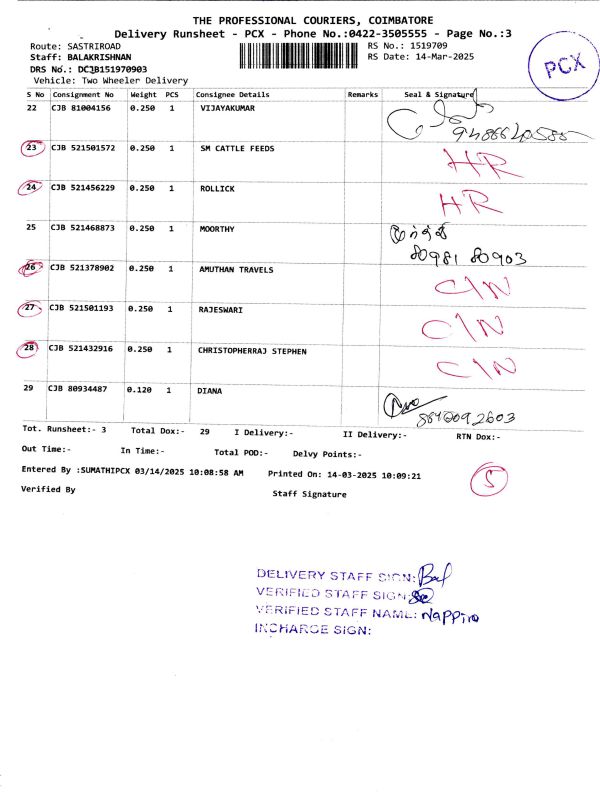 THE PROFESSIONAL COURIERS, COIMBATORE
Delivery Runsheet - PCX - Phone No.:0422-3505555 - Page No.:3
Route: SASTRIROAD RS No.: 1519709
Staff: BALAKRISHNAN RS Date: 14-Mar-2025
DRS No.: DCJB151970903
Vehicle: Two Wheeler Delivery
PCX
S No Consignment No Weight PCS Consignee Details Remarks Seal & Signature
22 CJB 81004156 0.250 1 VIJAYAKUMAR
23 CJB 521501572 0.250 1 SM CATTLE FEEDS HR
24 CJB 521456229 0.250 1 ROLLICK HR
25 CJB 521468873 0.250 1 MOORTHY மூர்த்தி
80981 80903
26 CJB 521378902 0.250 1 AMUTHAN TRAVELS C/N
27 CJB 521501193 0.250 1 RAJESWARI C/N
28 CJB 521432916 0.250 1 CHRISTOPHERRAJ STEPHEN C/N
29 CJB 80934487 0.120 1 DIANA
Tot. Runsheet:- 3 Total Dox:- 29 I Delivery:- II Delivery:- RTN Dox:-
Out Time:- In Time:- Total POD:- Delvy Points:-
Entered By :SUMATHIPCX 03/14/2025 10:08:58 AM Printed On: 14-03-2025 10:09:21
5
Verified By Staff Signature
DELIVERY STAFF SIGN: Bal
VERIFIED STAFF SIGN:
VERIFIED STAFF NAME:
INCHARGE SIGN: